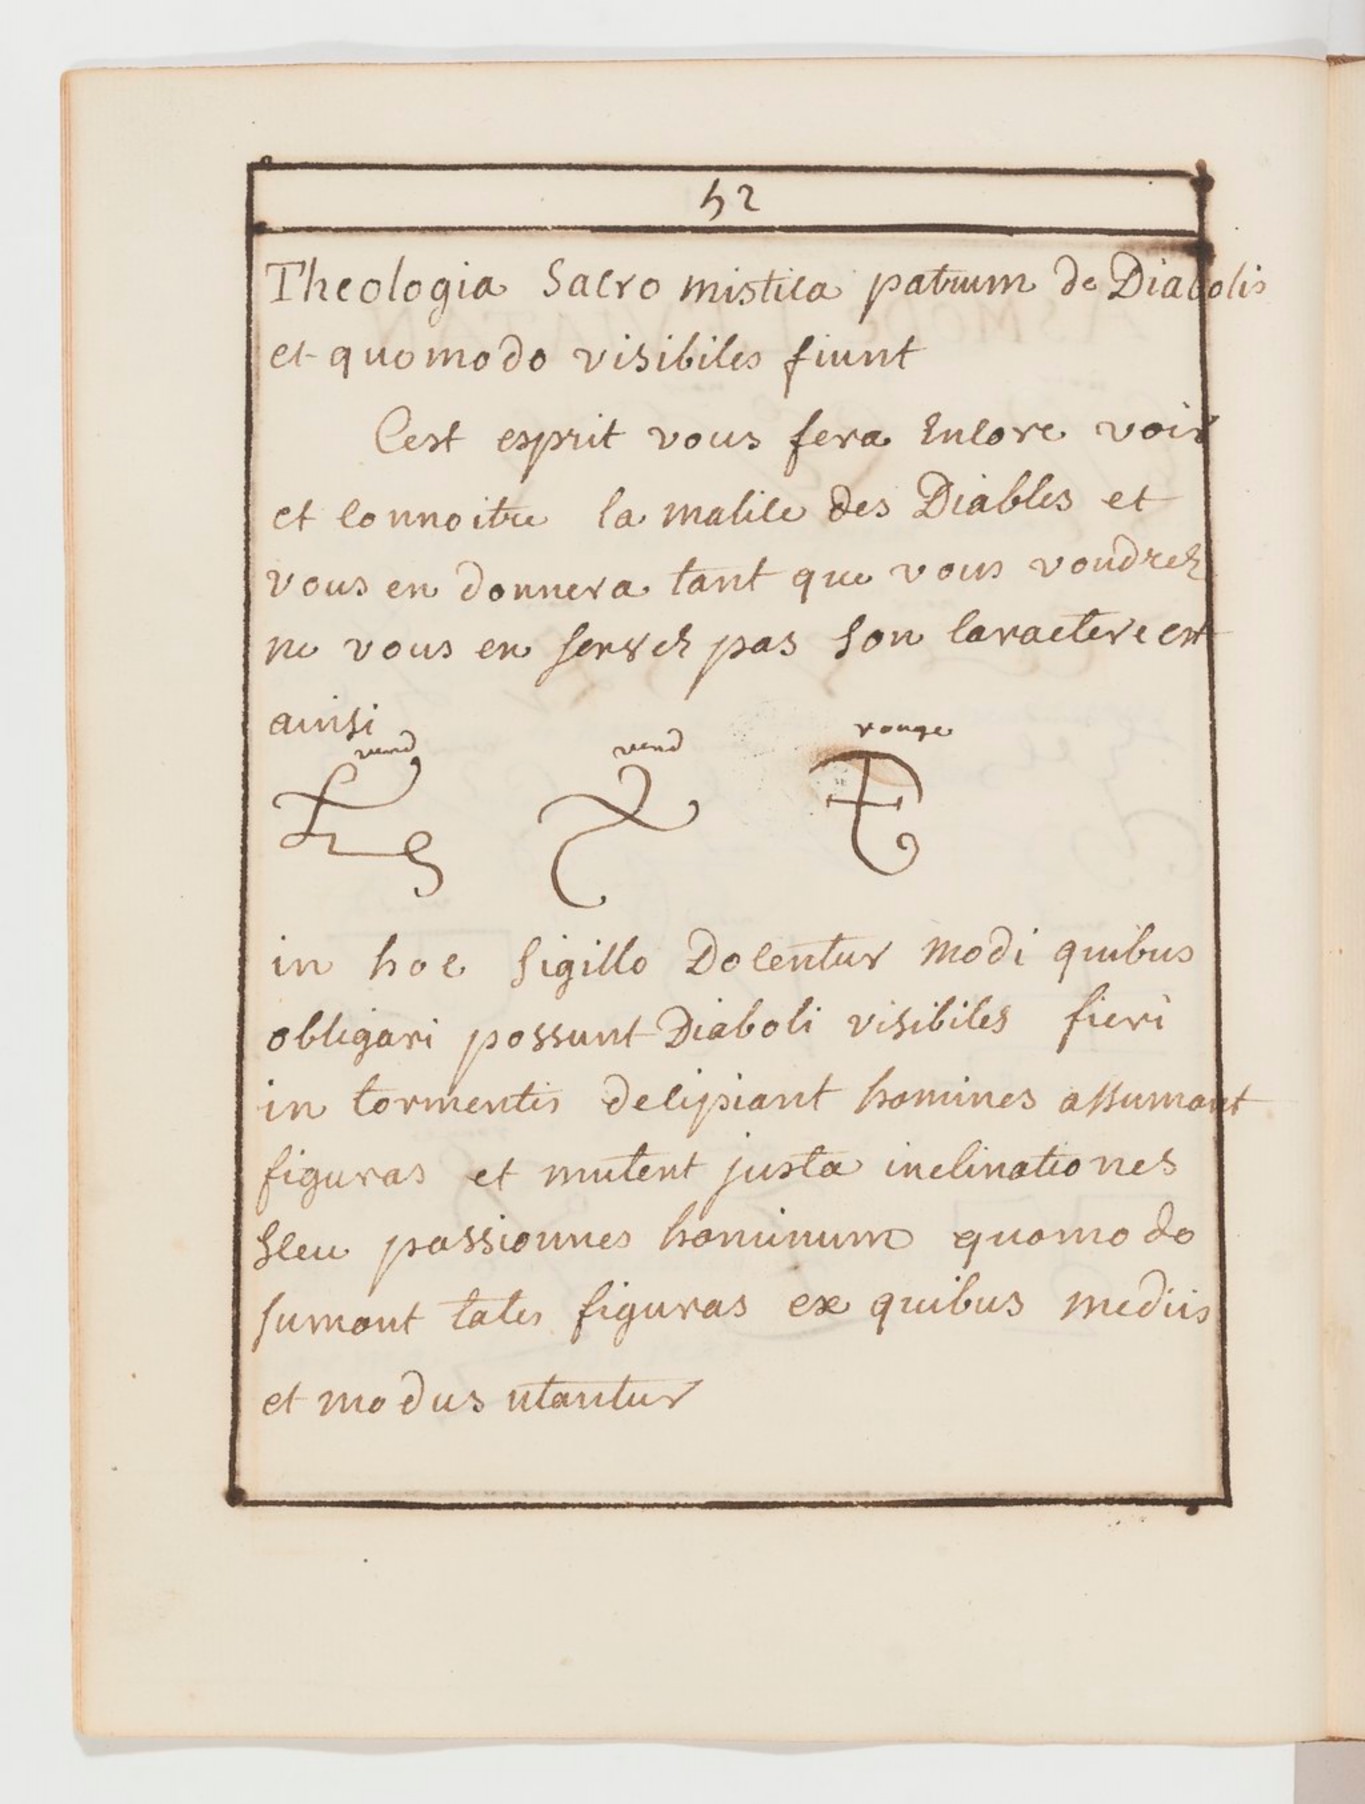 52
Theologia Sacro mistica patrum de Diabolis
et quomodo visibiles fiunt
Cest esprit vous fera encore voir
et connoitre la malice des Diables et
vous en donnera tant que vous voudrez
ne vous en servez pas son caractere est
ainsi
verd verd rouge
in hoc sigillo Docentur modi quibus
obligari possunt Diaboli visibiles fieri
in tormentis decipiant homines assumant
figuras et mutent juxta inclinationes
seu passionnes hominum quomodo
sumant tales figuras ex quibus mediis
et modus utantur